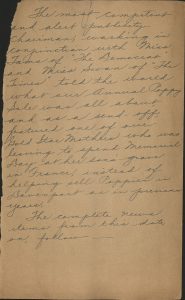 The most competent
and alert publicity
Chairman, working in
conjunction with Miss
of The Democrat
and Miss of The
Times told the world
what our Annual Poppy
Sale was all about
and as a send off
featured one of our
Gold Star Mothers who was
leaving to spend Memorial
Day at her sons grave
in France, instead of
helping sell Poppies in
Davenport as in previous
years.
The complete news
items from this date
on follow